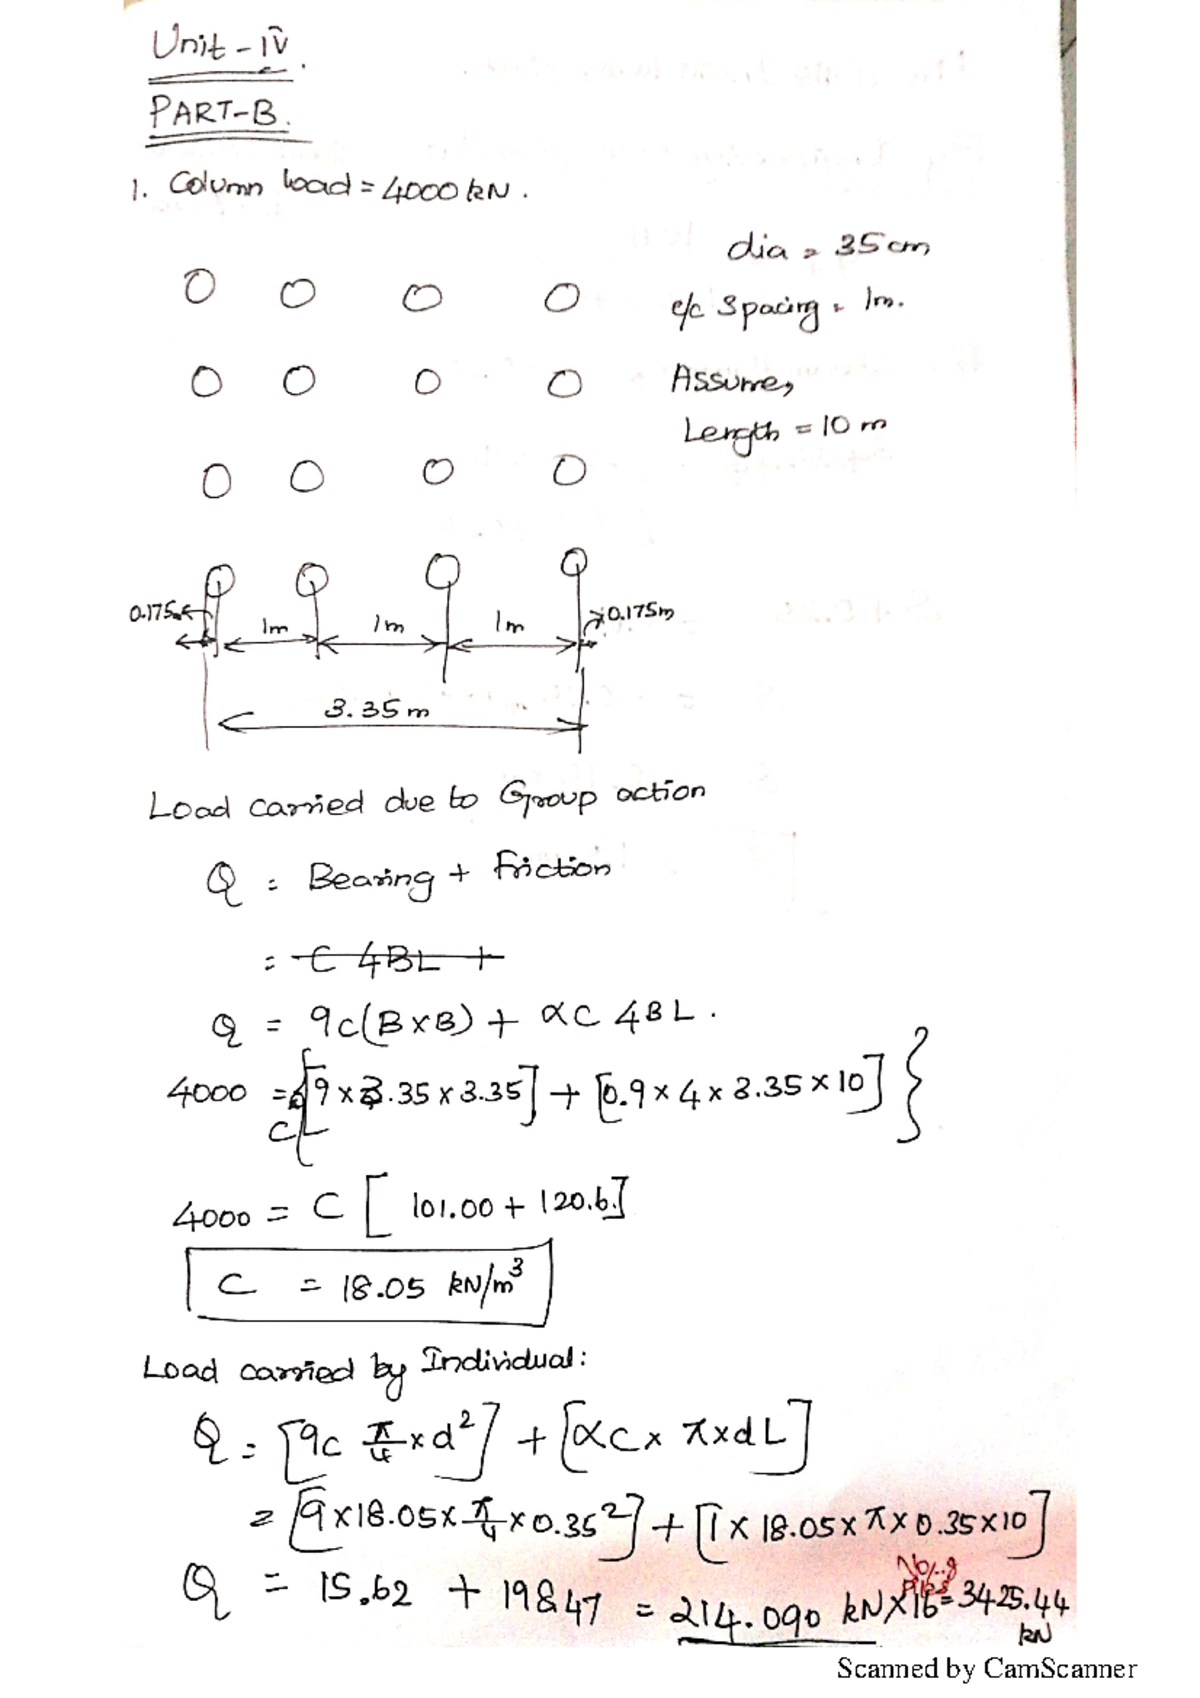 Unit - IV.
PART-B.
1. Column load = 4000 kN.
dia = 35 cm
c/c Spacing = 1m.
Assume,
Length = 10 m
0.175m 1m 1m 1m 0.175m
3.35 m
Load carried due to Group action
Q = Bearing + Friction
= C 4BL +
Q = 9c(B×B) + αC 4BL.
4000 = C{[9×3.35×3.35] + [0.9×4×3.35×10]}
4000 = C [101.00 + 120.6]
C = 18.05 kN/m³
Load carried by Individual:
Q = [9c π/4 × d²] + [αC × π×dL]
= [9×18.05×π/4×0.35²] + [1×18.05×π×0.35×10]
No. of Piles
Q = 15.62 + 198.47 = 214.090 kN×16 = 3425.44 kN
Scanned by CamScanner